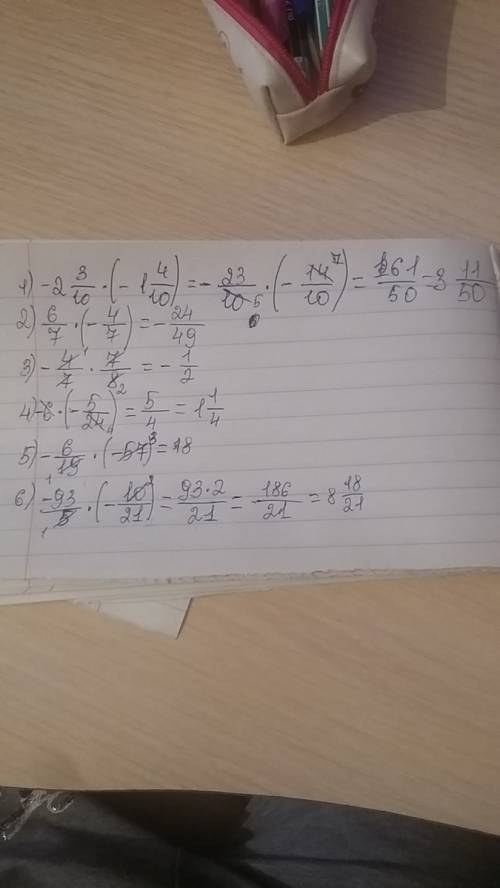 1) -2 3/10 · (-1 4/10) = - 23/10 5 · (- 14 7/10) = 161/50 = 3 11/50
2) 6/7 · (- 4/7) = - 24/49
3) - 4 1/7 · 7/8 2 = - 1/2
4) -6 · (- 5/24 4) = 5/4 = 1 1/4
5) - 6/19 1 · (-57) 3 = 18
6) -93/5 1 · (- 10 2/21) = 93·2/21 = 186/21 = 8 18/21